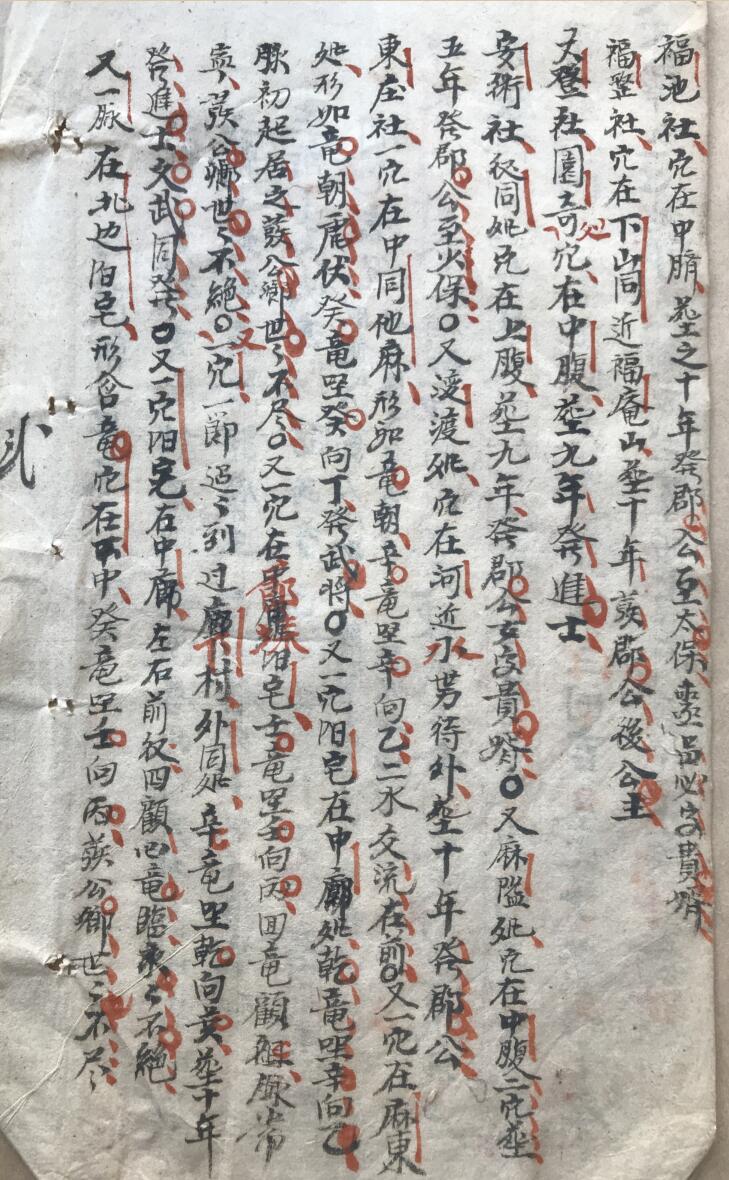 福池社穴在中腈塟之十年發郡公至太保必安貴壻
福整社穴在下山同近福庵山塟十年發郡公後公主
丈登社園奇処穴在中腹塟九年發進士
安術社役同処穴在上腹塟九年發郡公安貴壻又麻隘処穴在中腹二穴塟
五年發郡公至火保又渡渡処穴在河近水男待外塟十年發郡公
東庄社一穴在中同他麻形如竜朝辛竜坐辛向乙二水交流在前又一穴在麻東
処形如竜朝虎伏癸竜坐癸向丁發武將又一穴陽宅在中廟処乾竜坐辛向乙
脉初起居之發公卿世々不尽又一穴在中陽宅壬竜坐壬向丙回竜顧祖
發公卿世々不絶又一穴一節過々到过廊下村外同処辛竜坐乾向巽塟十年
發進士文武同發又一穴陽宅在中廊左右前後四顧四竜臨泉々不絶
又一脉在北边陽宅形含竜穴在中癸竜坐壬向丙發公卿世々不尽